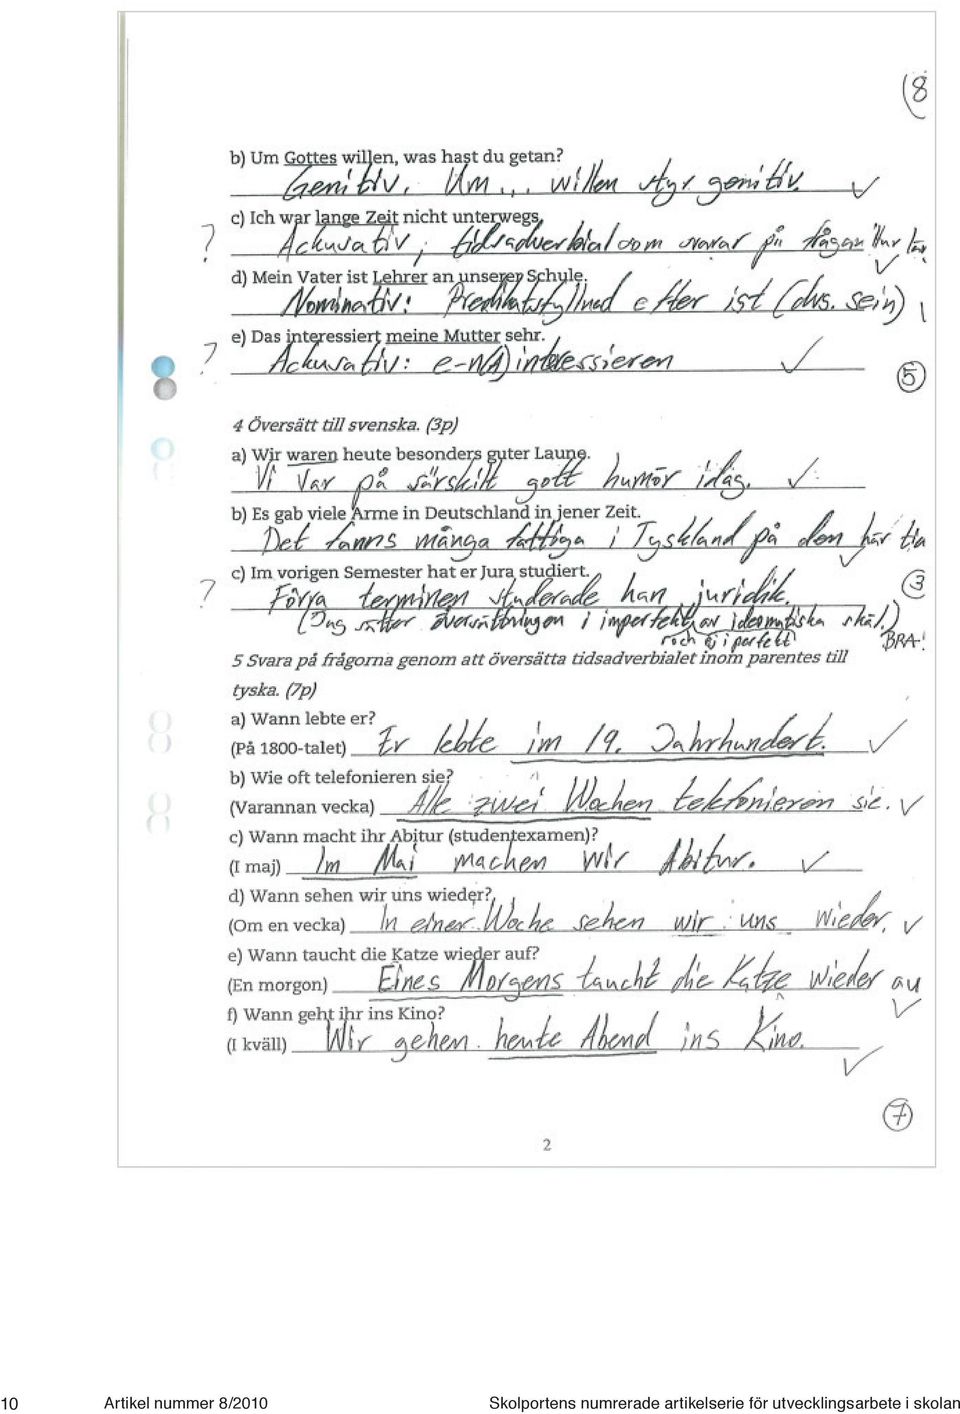 (8
b) Um Gottes willen, was hast du getan?
Genitiv. Um ... willen styr genitiv. ✓
? c) Ich war lange Zeit nicht unterwegs.
Ackusativ; tidsadverbial som svarar på frågan "Hur
d) Mein Vater ist Lehrer an unserer Schule. ✓
Nominativ: Predikatsfyllnad efter ist (dvs. sein)
? e) Das interessiert meine Mutter sehr.
Ackusativ: e-n(A) interessieren ✓
5
4 Översätt till svenska. (3p)
a) Wir waren heute besonders guter Laune.
Vi var på särskilt gott humör idag. ✓
b) Es gab viele Arme in Deutschland in jener Zeit.
Det fanns många fattiga i Tyskland på den här tia ✓
? c) Im vorigen Semester hat er Jura studiert. 3
Förra terminen studerade han juridik.
(Jag sätter översättningen i imperfekt av idiomatiska skäl.)
och ej i perfekt BRA!
5 Svara på frågorna genom att översätta tidsadverbialet inom parentes till
tyska. (7p)
a) Wann lebte er?
(På 1800-talet) Er lebte im 19. Jahrhundert. ✓
b) Wie oft telefonieren sie?
(Varannan vecka) Alle zwei Wochen telefonieren sie. ✓
c) Wann macht ihr Abitur (studentexamen)?
(I maj) Im Mai machen wir Abitur. ✓
d) Wann sehen wir uns wieder?
(Om en vecka) In einer Woche sehen wir uns wieder. ✓
e) Wann taucht die Katze wieder auf?
(En morgon) Eines Morgens taucht die Katze wieder au ✓
f) Wann geht ihr ins Kino?
(I kväll) Wir gehen heute Abend ins Kino. ✓
7
2
10 Artikel nummer 8/2010 Skolportens numrerade artikelserie för utvecklingsarbete i skolan